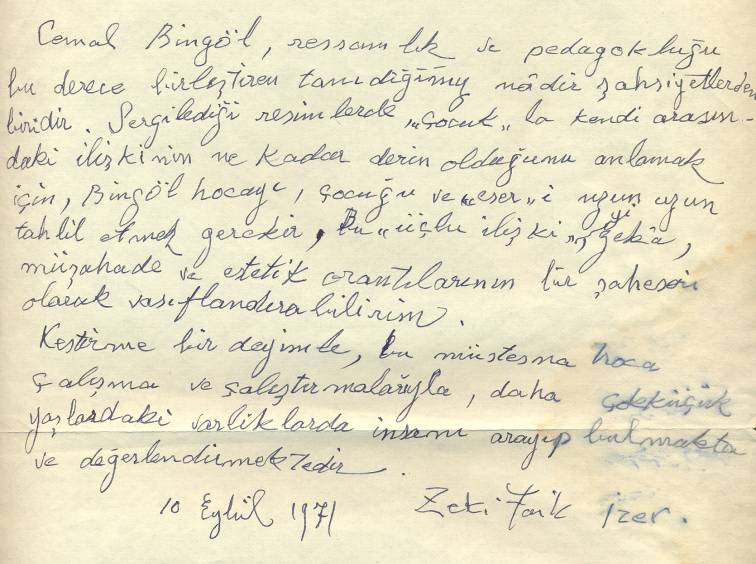 Cemal Bingöl, ressamlık ve pedagokluğu
bu derece birleştiren tanıdığımız nâdir şahsiyetlerden
biridir. Sergilediği resimlerde „çocuk„ la kendi arasın-
daki ilişkinin ne kadar derin olduğunu anlamak
için, Bingöl hocayı, çocuğu ve „eser„ i uzun uzun
tahlil etmek gerekir, Bu „üçlü ilişki„ yi zekâ,
müşahade ve estetik orantılarının bir şaheseri
olarak vasıflandırabilirim.
Kestirme bir deyimle, bu müstesna hoca
çalışma ve çalıştırmalarıyla, daha çok küçük
yaşlardaki varlıklarda insanı arayıp bulmakta
ve değerlendirmektedir.
10 Eylül 1971 Zeki Faik İzer.